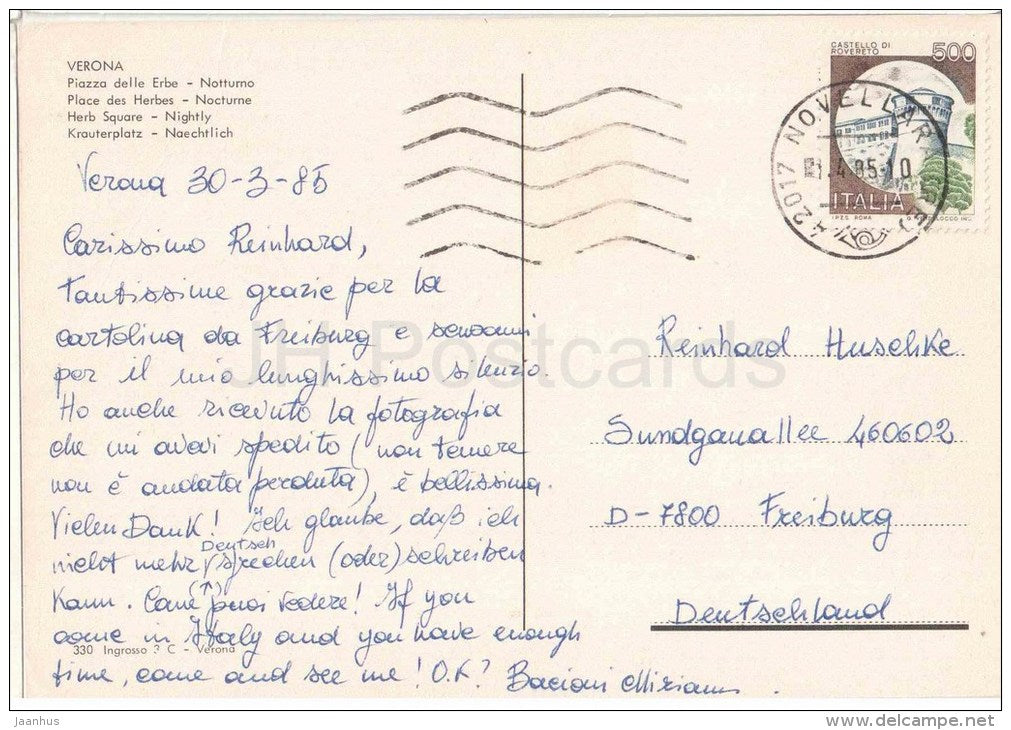 VERONA
Piazza delle Erbe - Notturno
Place des Herbes - Nocturne
Herb Square - Nightly
Krauterplatz - Naechtlich
Verona 30-3-85
Carissimo Reinhard,
tantissime grazie per la
cartolina da Freiburg e scusami
per il mio lunghissimo silenzio.
Ho anche ricevuto la fotografia
che mi avevi spedito (non temere
non è andata perduta), è bellissima.
Vielen Dank! Ich glaube, daß ich
nicht mehr Deutsch sprechen (oder) schreiben
kann. Come puoi vedere! If you
come in Italy and you have enough
time, come and see me! O.K? Bacioni Miriam.
330 Ingrosso 3 C - Verona
CASTELLO DI
ROVERETO
500
ITALIA
I.P.Z.S. ROMA
42017 NOVELLARA (RE)
1.4.85-10
Reinhard Huschke
Sundgauallee 460602
D-7800 Freiburg
Deutschland
JH Postcards
jaanhus
www.delcampe.net